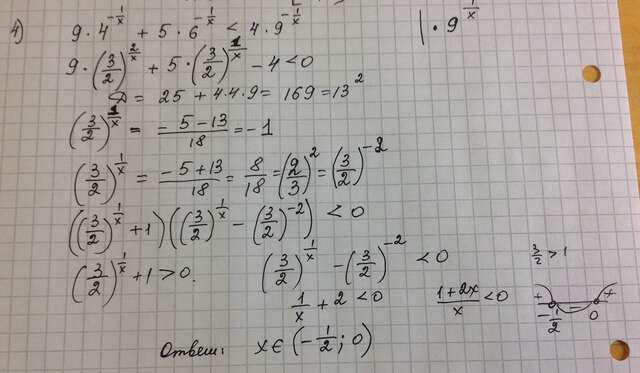 4) 9 · 4^(-1/x) + 5 · 6^(-1/x) < 4 · 9^(-1/x) | · 9^(1/x)
9 · (3/2)^(2/x) + 5 · (3/2)^(1/x) - 4 < 0
D = 25 + 4·4·9 = 169 = 13^2
(3/2)^(1/x) = (-5-13)/18 = -1
(3/2)^(1/x) = (-5+13)/18 = 8/18 = (2/3)^2 = (3/2)^(-2)
((3/2)^(1/x) + 1)((3/2)^(1/x) - (3/2)^(-2)) < 0
(3/2)^(1/x) + 1 > 0. (3/2)^(1/x) - (3/2)^(-2) < 0 3/2 > 1
1/x + 2 < 0 (1+2x)/x < 0 + - +
-1/2 0
Ответ: x ∈ (-1/2; 0)